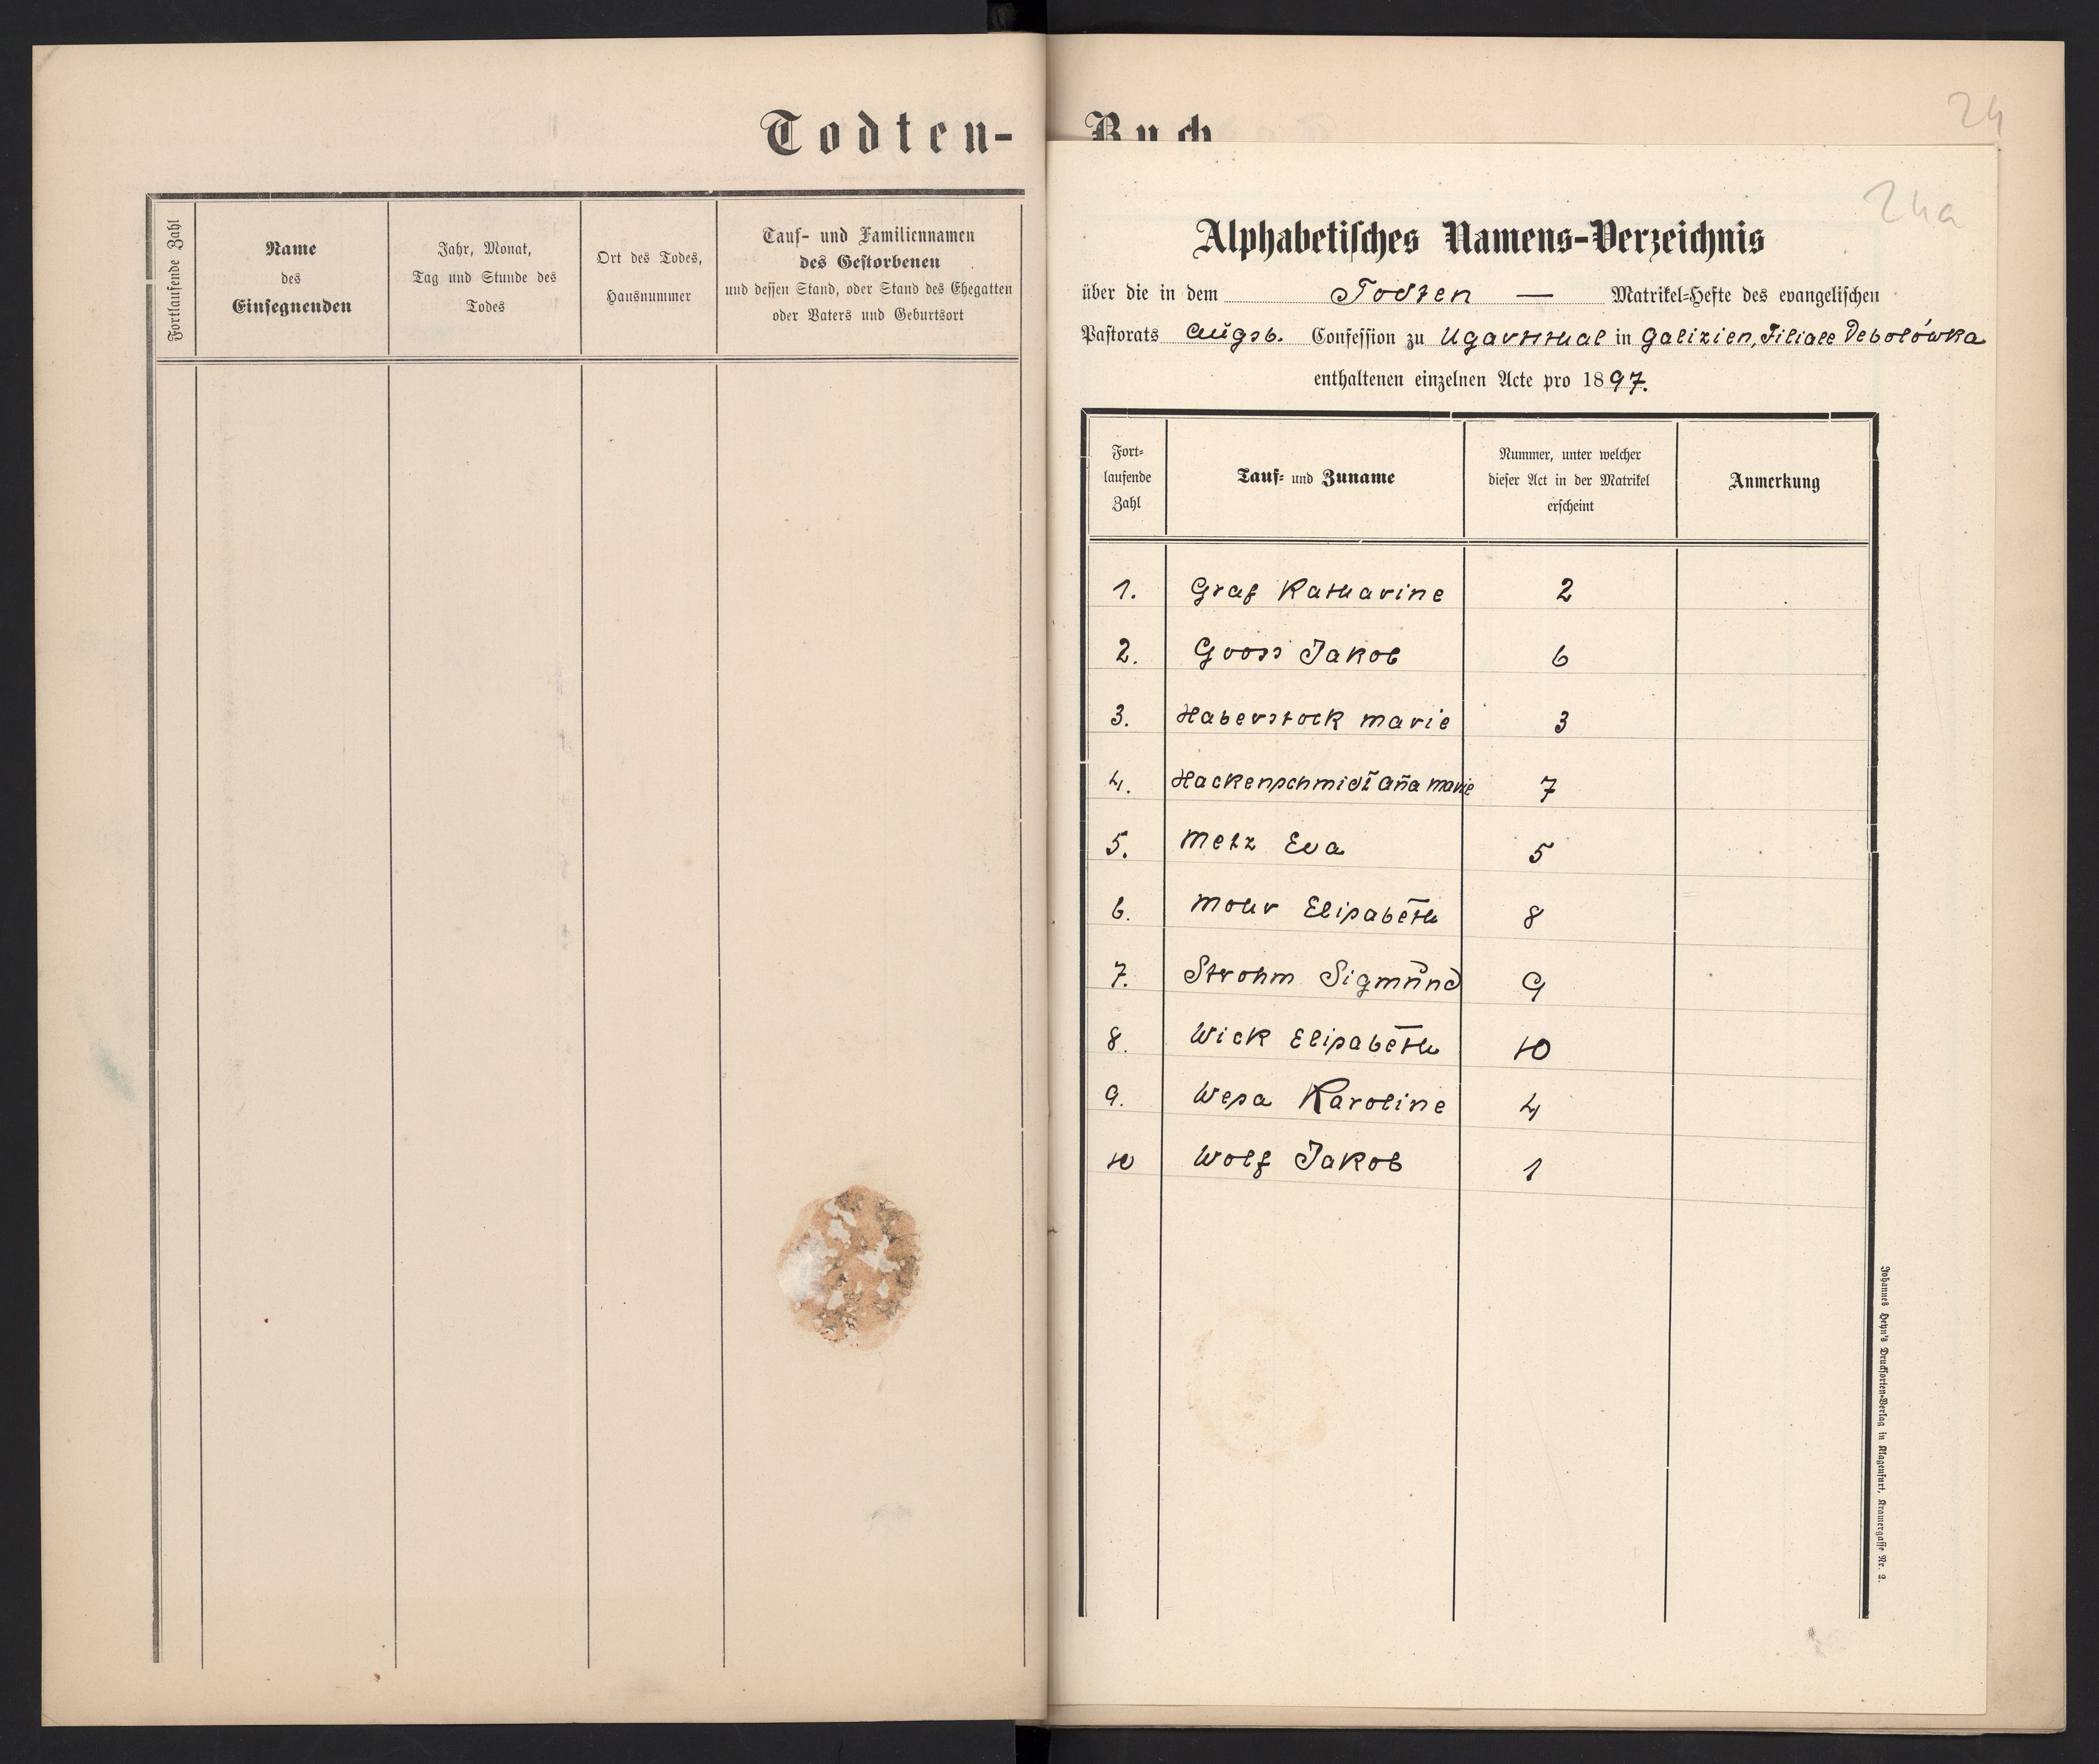 Todten-
Fortlaufende Zahl
Name
des
Einsegnenden
Jahr, Monat,
Tag und Stunde des
Todes
Ort des Todes,
Hausnummer
Tauf- und Familiennamen
des Gestorbenen
und dessen Stand, oder Stand des Ehegatten
oder Vaters und Geburtsort
Buch
24
24a
Alphabetisches Namens-Verzeichnis
über die in dem Todten — Matrikel-Hefte des evangelischen
Pastorats Augsb. Confession zu Ugartsthal in Galizien, Filiale Debolówka
enthaltenen einzelnen Acte pro 1897.
Fort-
laufende
Zahl
Tauf- und Zuname
Nummer, unter welcher
dieser Act in der Matrikel
erscheint
Anmerkung
1. Graf Katharine 2
2. Gooss Jakob 6
3. Haberstock Marie 3
4. Hackenschmidt Aña Marie 7
5. Metz Eva 5
6. Mohr Elisabeth 8
7. Strohm Sigmund 9
8. Wick Elisabeth 10
9. Wesa Karoline 4
10 Wolf Jakob 1
Johannes Heyn's Drucksorten-Verlag in Klagenfurt, Kramergasse Nr. 2.